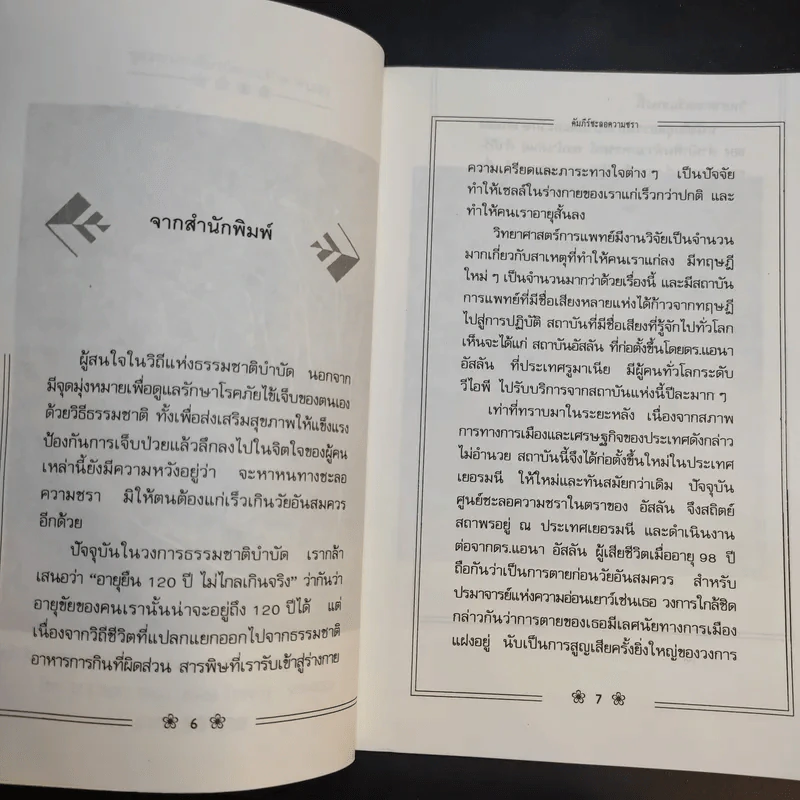 จากสำนักพิมพ์
ผู้สนใจในวิถีแห่งธรรมชาติบำบัด นอกจาก
มีจุดมุ่งหมายเพื่อดูแลรักษาโรคภัยไข้เจ็บของตนเอง
ด้วยวิธีธรรมชาติ ทั้งเพื่อส่งเสริมสุขภาพให้แข็งแรง
ป้องกันการเจ็บป่วยแล้วลึกลงไปในจิตใจของผู้คน
เหล่านี้ยังมีความหวังอยู่ว่า จะหาหนทางชะลอ
ความชรา มิให้ตนต้องแก่เร็วเกินวัยอันสมควร
อีกด้วย
ปัจจุบันในวงการธรรมชาติบำบัด เรากล้า
เสนอว่า “อายุยืน 120 ปี ไม่ไกลเกินจริง” ว่ากันว่า
อายุขัยของคนเรานั้นน่าจะอยู่ถึง 120 ปีได้ แต่
เนื่องจากวิถีชีวิตที่แปลกแยกออกไปจากธรรมชาติ
อาหารการกินที่ผิดส่วน สารพิษที่เรารับเข้าสู่ร่างกาย
6
คัมภีร์ชะลอความชรา
ความเครียดและภาระทางใจต่าง ๆ เป็นปัจจัย
ทำให้เซลล์ในร่างกายของเราแก่เร็วกว่าปกติ และ
ทำให้คนเราอายุสั้นลง
วิทยาศาสตร์การแพทย์มีงานวิจัยเป็นจำนวน
มากเกี่ยวกับสาเหตุที่ทำให้คนเราแก่ลง มีทฤษฎี
ใหม่ ๆ เป็นจำนวนมากว่าด้วยเรื่องนี้ และมีสถาบัน
การแพทย์ที่มีชื่อเสียงหลายแห่งได้ก้าวจากทฤษฎี
ไปสู่การปฏิบัติ สถาบันที่มีชื่อเสียงที่รู้จักไปทั่วโลก
เห็นจะได้แก่ สถาบันอัสลัน ที่ก่อตั้งขึ้นโดยดร.แอนา
อัสลัน ที่ประเทศรูมาเนีย มีผู้คนทั่วโลกระดับ
วีไอพี ไปรับบริการจากสถาบันแห่งนี้ปีละมาก ๆ
เท่าที่ทราบมาในระยะหลัง เนื่องจากสภาพ
การทางการเมืองและเศรษฐกิจของประเทศดังกล่าว
ไม่อำนวย สถาบันนี้จึงได้ก่อตั้งขึ้นใหม่ในประเทศ
เยอรมนี ให้ใหม่และทันสมัยกว่าเดิม ปัจจุบัน
ศูนย์ชะลอความชราในตราของ อัสลัน จึงสถิตย์
สถาพรอยู่ ณ ประเทศเยอรมนี และดำเนินงาน
ต่อจากดร.แอนา อัสลัน ผู้เสียชีวิตเมื่ออายุ 98 ปี
ถือกันว่าเป็นการตายก่อนวัยอันสมควร สำหรับ
ปรมาจารย์แห่งความอ่อนเยาว์เช่นเธอ วงการใกล้ชิด
กล่าวกันว่าการตายของเธอมีเลศนัยทางการเมือง
แฝงอยู่ นับเป็นการสูญเสียครั้งยิ่งใหญ่ของวงการ
7